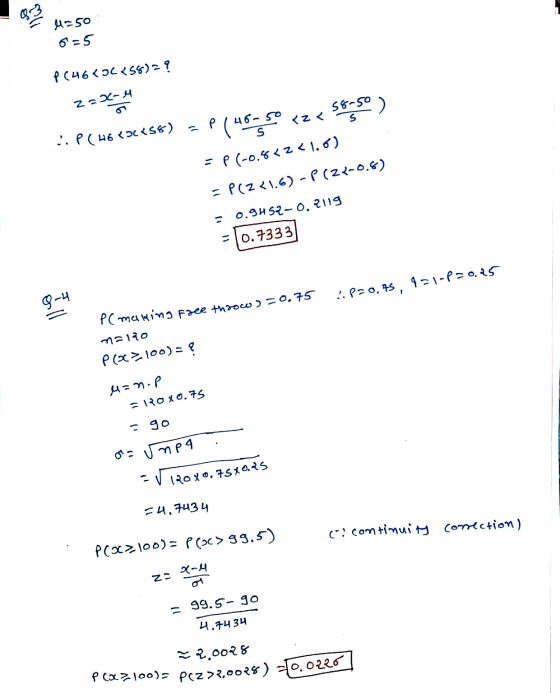 Q-3
μ=50
σ=5
P(46<x<58)=?
z=x-μ/σ
∴ P(46<x<58) = P(46-50/5 <z< 58-50/5)
= P(-0.8<z<1.6)
= P(Z<1.6) - P(Z<-0.8)
= 0.9452-0.2119
= 0.7333
Q-4
P(making Free throw)=0.75 ∴P=0.75, q=1-P=0.25
n=120
P(x≥100)=?
μ=n.P
= 120x0.75
= 90
σ= √npq
= √120x0.75x0.25
=4.7434
P(x≥100)= P(x>99.5) (∵ continuity correction)
z= x-μ/σ
= 99.5-90/4.7434
≈2.0028
P(x≥100)= P(z>2.0028) =0.0226